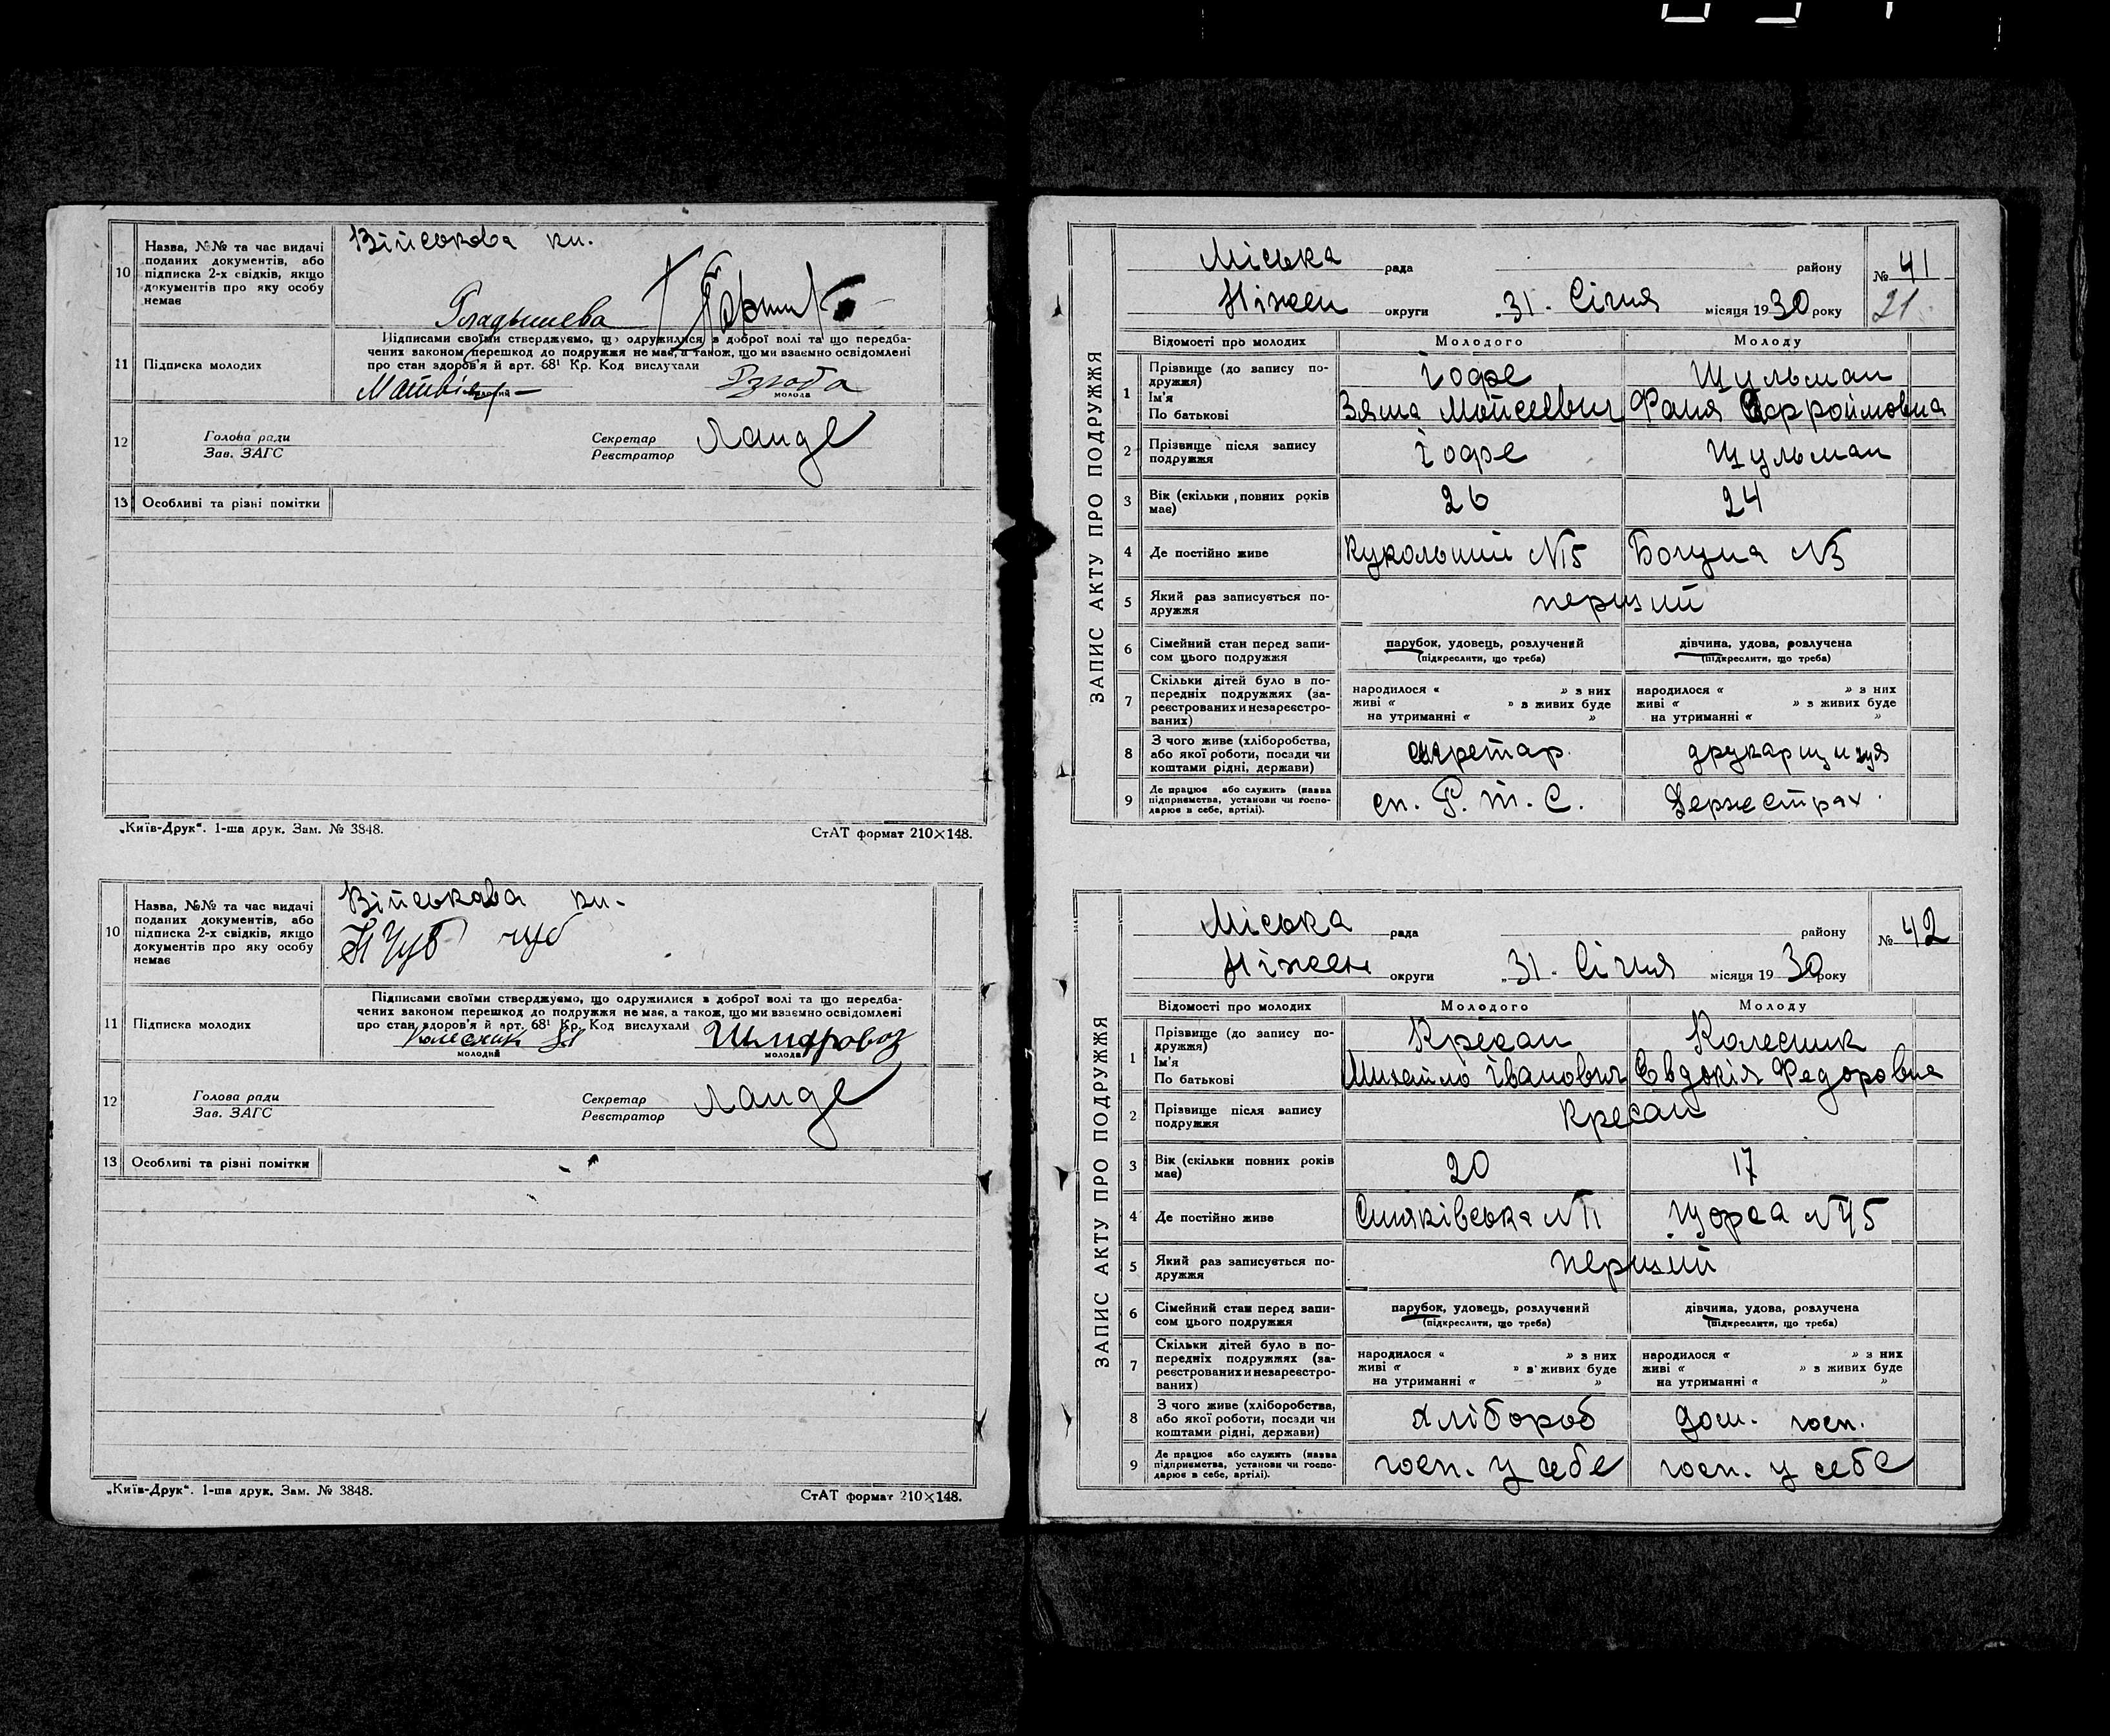 10
Назва, №№ та час видачі
поданих документів, або
підписка 2-х свідків, якщо
документів про яку особу
немає
Військова кн.
Гладышева
11
Підписка молодих
Підписами своїми стверджуємо, що одружилися в доброї волі та що передба-
чених законом перешкод до подружжя не має, а також, що ми взаємно освідомлені
про стан здоров'я й арт. 68¹ Кр. Код вислухали
молодий
молода
12
Голова ради
Зав. ЗАГС
Секретар
Реєстратор
Ланде
13 Особливі та різні помітки
„Київ-Друк“. 1-ша друк. Зам. № 3848.
СтАТ формат 210×148.
10
Назва, №№ та час видачі
поданих документів, або
підписка 2-х свідків, якщо
документів про яку особу
немає
Військова кн.
Чуб чуб
11
Підписка молодих
Підписами своїми стверджуємо, що одружилися в доброї волі та що передба-
чених законом перешкод до подружжя не має, а також, що ми взаємно освідомлені
про стан здоров'я й арт. 68¹ Кр. Код вислухали
Колесник
молодий
молода
12
Голова ради
Зав. ЗАГС
Секретар
Реєстратор
Ланде
13 Особливі та різні помітки
„Київ-Друк“. 1-ша друк. Зам. № 3848.
СтАТ формат 210×148.
ЗАПИС АКТУ ПРО ПОДРУЖЖЯ
Міська рада району № 41
Ніжен округи „31“ Січня місяця 1930 року
21
Відомості про молодих Молодого Молоду
1 Прізвище (до запису по-
дружжя)
Ім'я
По батькові
Іофе Шульман
Зяма Мойсеєвич Фаня Єфроїмовна
2 Прізвище після запису
подружжя
Іофе Шульман
3 Вік (скільки повних років
має)
26 24
4 Де постійно живе
№15 Богуна №3
5 Який раз записується по-
дружжя
перший
6 Сімейний стан перед запи-
сом цього подружжя
парубок, удовець, розлучений дівчина, удова, розлучена
(підкреслити, що треба) (підкреслити, що треба)
7 Скільки дітей було в по-
передніх подружжях (за-
реєстрованих и незареєстро-
ваних)
народилося « » з них народилося « » з них
живі « » в живих буде живі « » в живих буде
на утриманні « » на утриманні « »
8 З чого живе (хліборобства,
або якої роботи, посади чи
коштами рідні, держави)
секретар друкарщиця
9 Де працює або служить (назва
підприємства, установи чи госпо-
дарює в себе, артілі).
сп. Р. т. С. Держстрах
ЗАПИС АКТУ ПРО ПОДРУЖЖЯ
Міська рада району № 42
Ніжен округи „31“ Січня місяця 1930 року
Відомості про молодих Молодого Молоду
1 Прізвище (до запису по-
дружжя)
Ім'я
По батькові
Кресан Колесник
Михайло Іванович Євдокія Федоровна
2 Прізвище після запису
подружжя
Кресан
3 Вік (скільки повних років
має)
20 17
4 Де постійно живе
Синяківська №11 Щорса №45
5 Який раз записується по-
дружжя
перший
6 Сімейний стан перед запи-
сом цього подружжя
парубок, удовець, розлучений дівчина, удова, розлучена
(підкреслити, що треба) (підкреслити, що треба)
7 Скільки дітей було в по-
передніх подружжях (за-
реєстрованих и незареєстро-
ваних)
народилося « » з них народилося « » з них
живі « » в живих буде живі « » в живих буде
на утриманні « » на утриманні « »
8 З чого живе (хліборобства,
або якої роботи, посади чи
коштами рідні, держави)
хлібороб дом. госп.
9 Де працює або служить (назва
підприємства, установи чи госпо-
дарює в себе, артілі).
госп. у себе госп. у себе